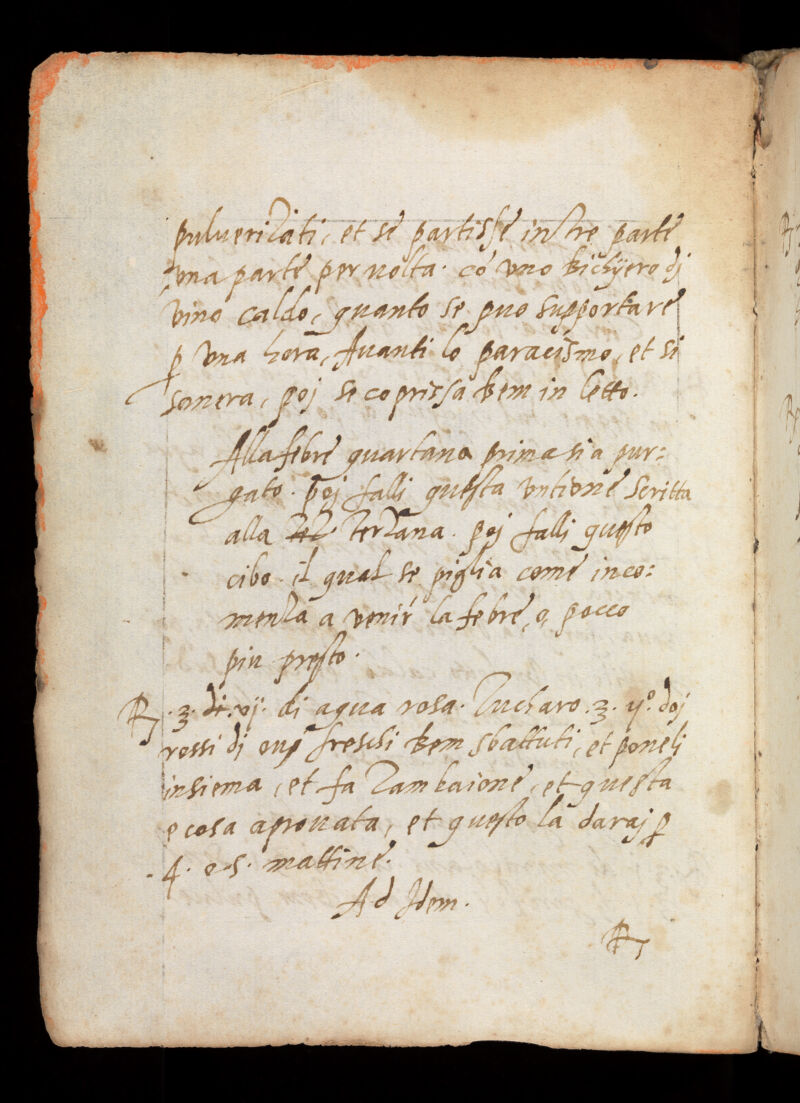 pulverizati, et se partisse in tre parte
una parte per uolta. cō uno bichyero dj
vino caldo, quanto se puo supportare
p una hora, Auanti lo paracismo, et si
somera, poj se coprissa bem in letto.
Alla febre quartana prima sia pur:
gato. poj falli questa untione scritta
alla terzana. poj falli questo
cibo. il qual se piglia come inco:
menza a venir la febre, o, pocco
piu presto.
℞ .ʒ. di. vj. di aqua rosa. Zucharo .ʒ. yº. doj
rossi di ouj freschi bem sbattuti, et poneli
insiema, et fa Zambaione, et questa
e cosa aprouata, et questo la daraj p
.4. o .5. mattine.
Ad Idem.
℞